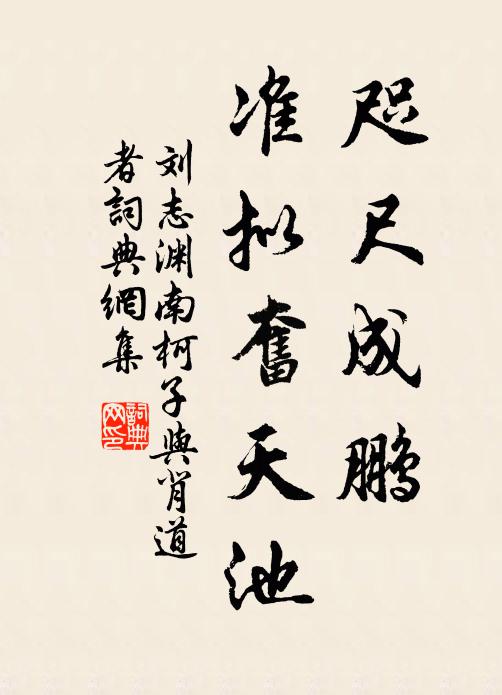 咫尺成鹏
准拟奋天池
刘志渊南柯子與肖道
者詞典網集
詞典网印